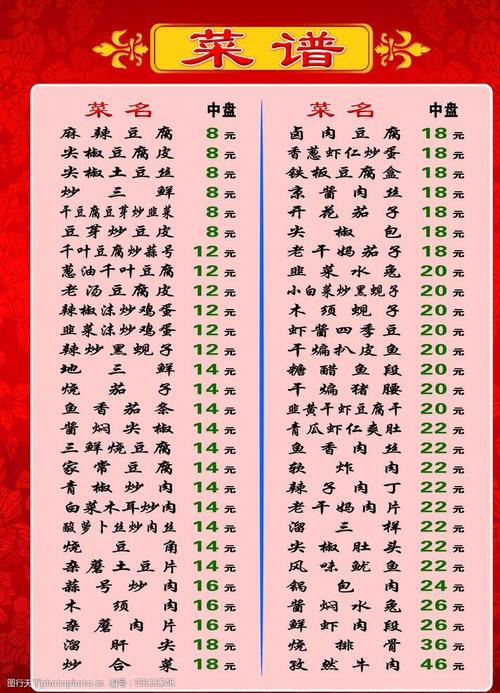 菜谱
菜名 中盘
麻辣豆腐 8元
尖椒豆腐皮 8元
尖椒土豆丝 8元
炒三鲜 8元
干豆腐豆芽炒韭菜 8元
豆芽炒豆皮 8元
千叶豆腐炒蒜号 12元
葱油千叶豆腐 12元
老汤豆腐皮 12元
辣椒沫炒鸡蛋 12元
韭菜沫炒鸡蛋 12元
辣炒黑蚬子 12元
地三鲜 14元
烧茄子 14元
鱼香茄条 14元
酱焖尖椒 14元
三鲜烧豆腐 14元
家常豆腐 14元
青椒炒肉 14元
白菜木耳炒肉 14元
酸萝卜丝炒肉丝 14元
烧豆角 14元
杂蘑土豆片 14元
蒜号炒肉 16元
木须肉 16元
杂蘑肉片 16元
溜肝尖 18元
炒合菜 18元
菜名 中盘
卤肉豆腐 18元
香葱虾仁炒蛋 18元
铁板豆腐盒 18元
京酱肉丝 18元
开花茄子 18元
尖椒包 18元
老干妈茄子 18元
韭菜水兔 20元
小白菜炒黑蚬子 20元
木须蚬子 20元
虾酱四季豆 20元
干煸扒皮鱼 20元
糖醋鱼段 20元
干煸猪腰 20元
韭黄干虾豆腐干 20元
青瓜虾仁爽肚 22元
鱼香肉丝 22元
软炸肉 22元
辣子肉丁 22元
老干妈肉片 22元
溜三样 22元
尖椒肚头 22元
风味鱿鱼 22元
锅包肉 24元
酱焖水兔 26元
鲜虾肉段 26元
烧排骨 36元
孜然牛肉 46元